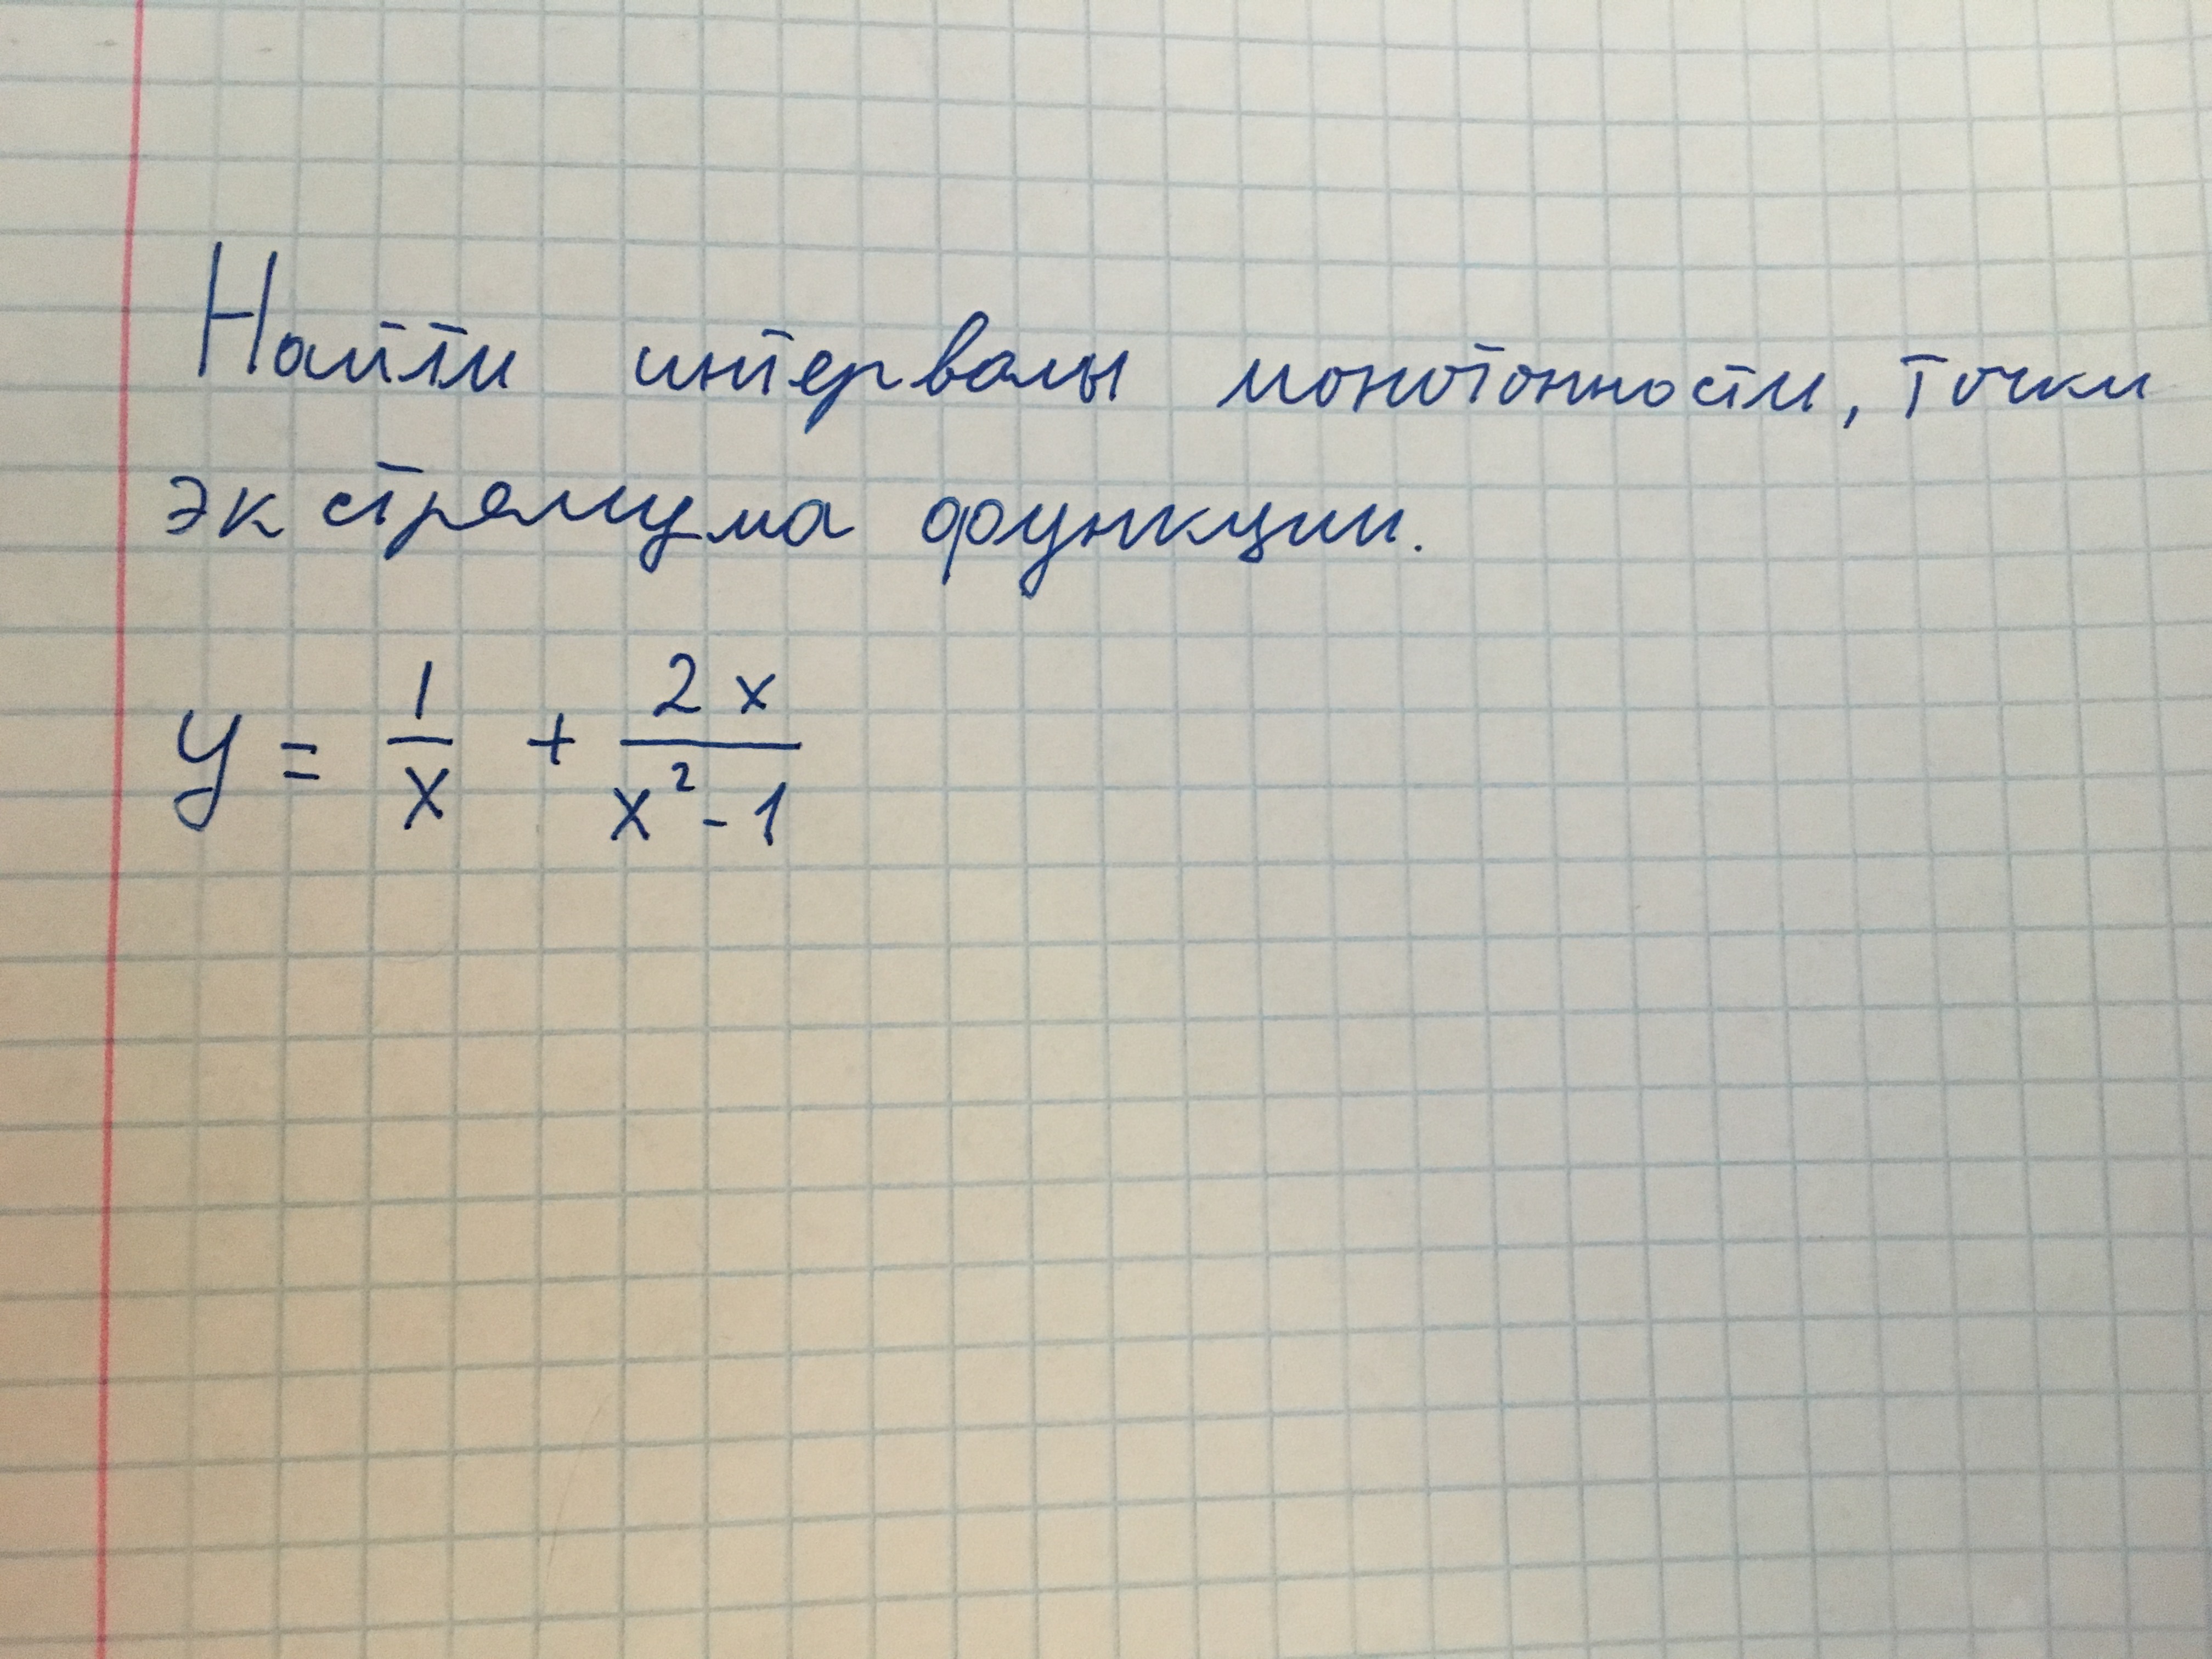 Найти интервалы монотонности, точки
экстремума функции.
y = 1/x + 2x/(x² - 1)